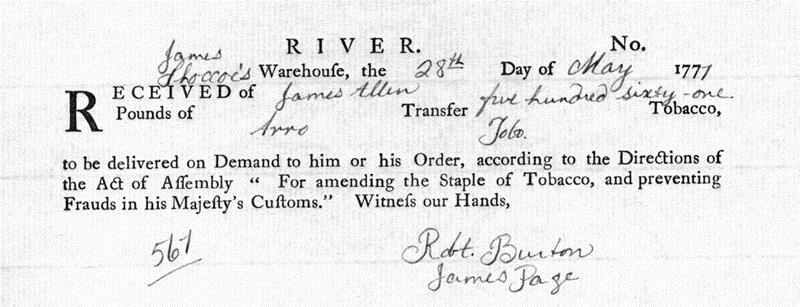 James RIVER. No.
Shoccoe's Warehouſe, the 28th Day of May 1771
RECEIVED of James Allen five hundred sixty-one
Pounds of Arro Transfer Tobo. Tobacco,
to be delivered on Demand to him or his Order, according to the Directions of
the Act of Aſſembly “ For amending the Staple of Tobacco, and preventing
Frauds in his Majeſty's Cuſtoms.” Witneſs our Hands,
561 Robt. Burton
James Page